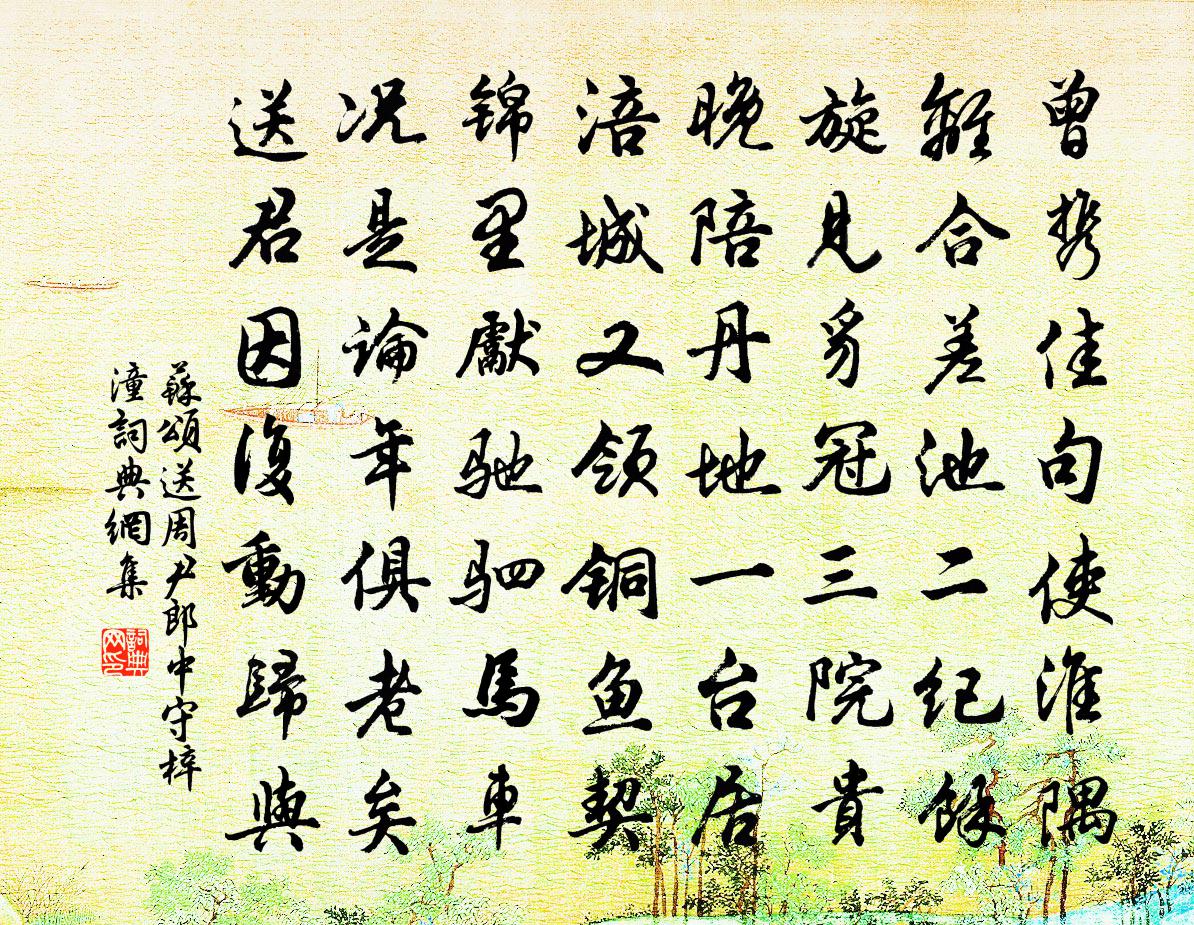 曾携佳句使淮隅
離合差池二纪餘
旋見豸冠三院貴
晚陪丹地一台居
涪城又領铜鱼契
锦里獻驰驷馬車
况是論年俱老矣
送君因復動歸與
蘇頌送周尹郎中守梓
潼詞典網集
詞典
网印